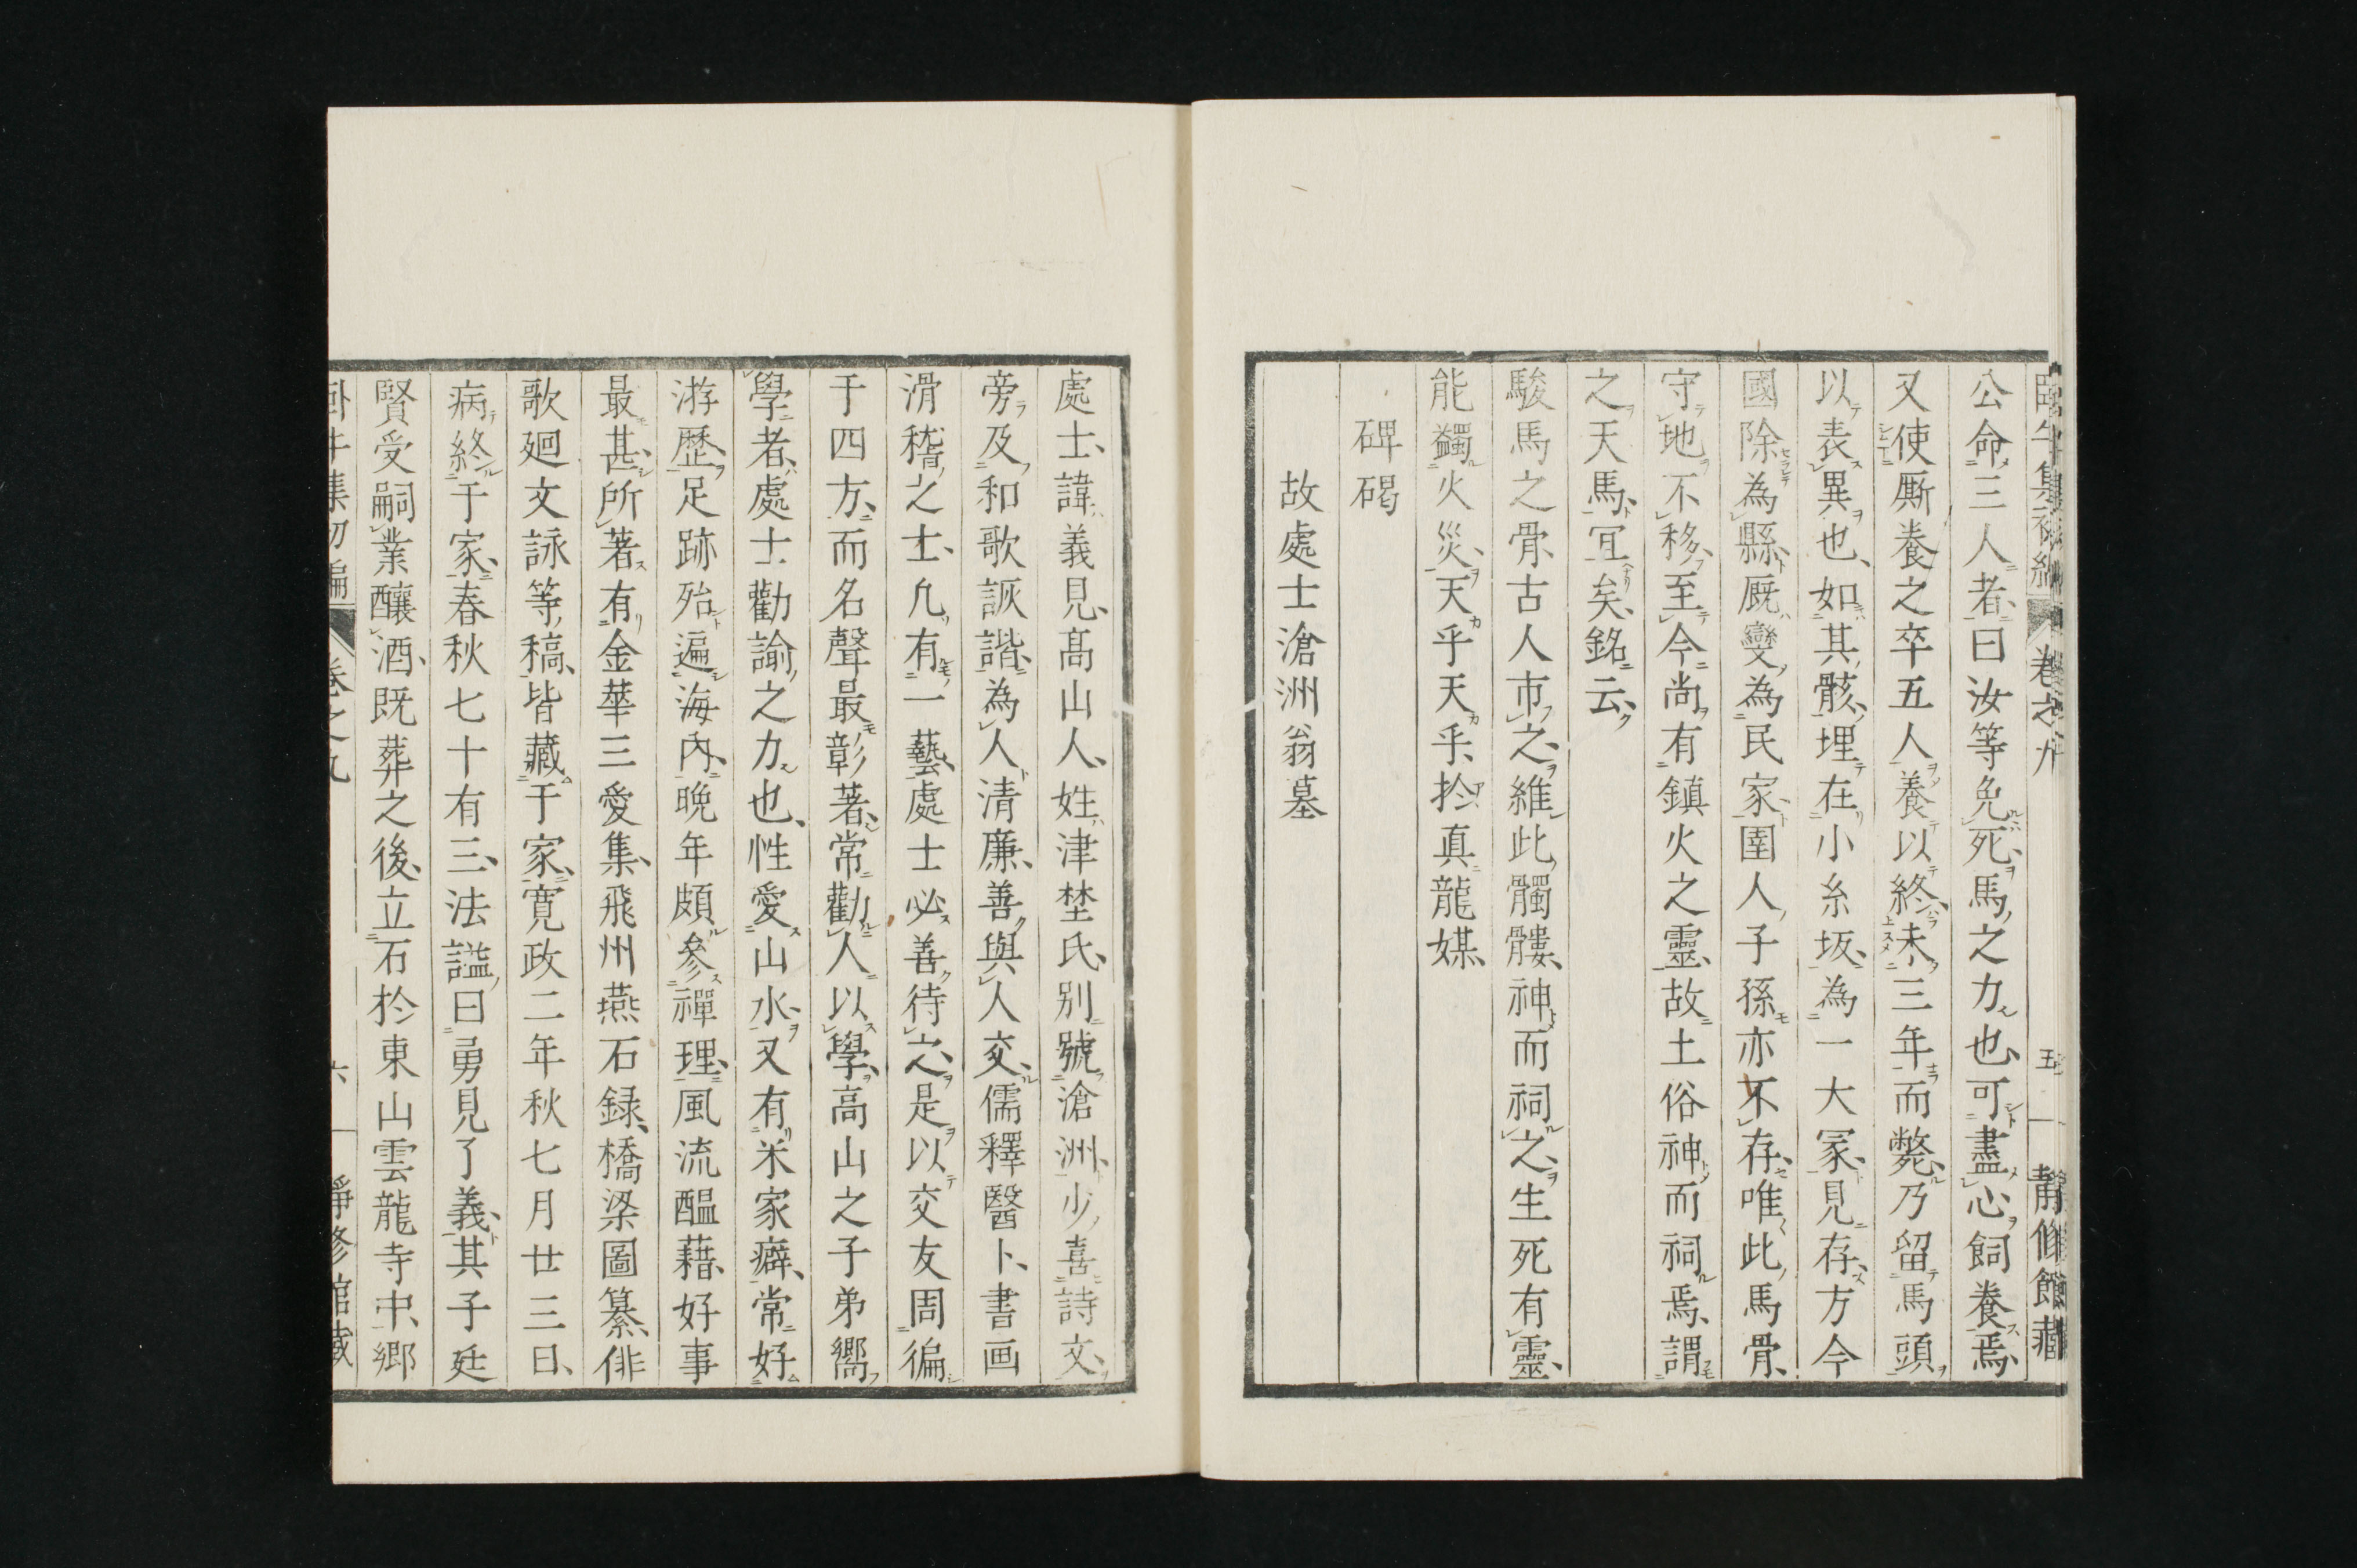 臥牛集初編　卷之九　五　靜修館藏
公命三人者曰汝等免死馬之力也可盡心飼養焉
又使厮養之卒五人養以終未三年而斃乃留馬頭
以表異也如其骸埋在小糸坂為一大冢見存方今
國除為縣厩變為民家圉人子孫亦不存唯此馬骨
守地不移至今尚有鎮火之靈故土俗神而祠焉謂
之天馬冝矣銘云
駿馬之骨古人市之維此髑髏神而祠之生死有靈
能蠲火災天乎天乎於真龍媒
碑碣
故處士滄洲翁墓
處士諱義見髙山人姓津埜氏別號滄洲少喜詩文
旁及和歌詼諧為人清廉善與人交儒釋醫卜書画
滑稽之士凢有一藝處士必善待之是以交友周徧
于四方而名聲最彰著常勸人以學高山之子弟嚮
學者處士勸諭之力也性愛山水又有米家癖常好
游歷足跡殆遍海內晚年頗參禪理風流醞藉好事
最甚所著有金華三愛集飛州燕石録橋梁圖纂俳
歌廻文詠等稿皆藏于家寛政二年秋七月廿三日
病終于家春秋七十有三法謚曰勇見了義其子廷
賢受嗣業釀酒既葬之後立石於東山雲龍寺中鄉
臥牛集初編　卷之九　六　靜修館藏